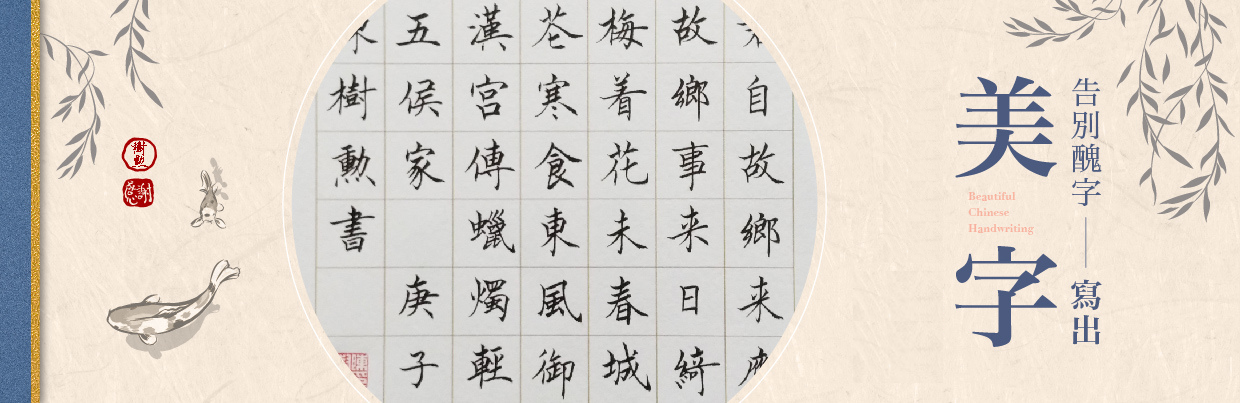 告別醜字—寫出
美字
Beautiful
Chinese
Handwriting
自故鄉来
故鄉事来日綺
梅着花未春城
花寒食東風御
漢宮傳蠟燭輕
五侯家 庚子
樹勳書
樹勳
感謝